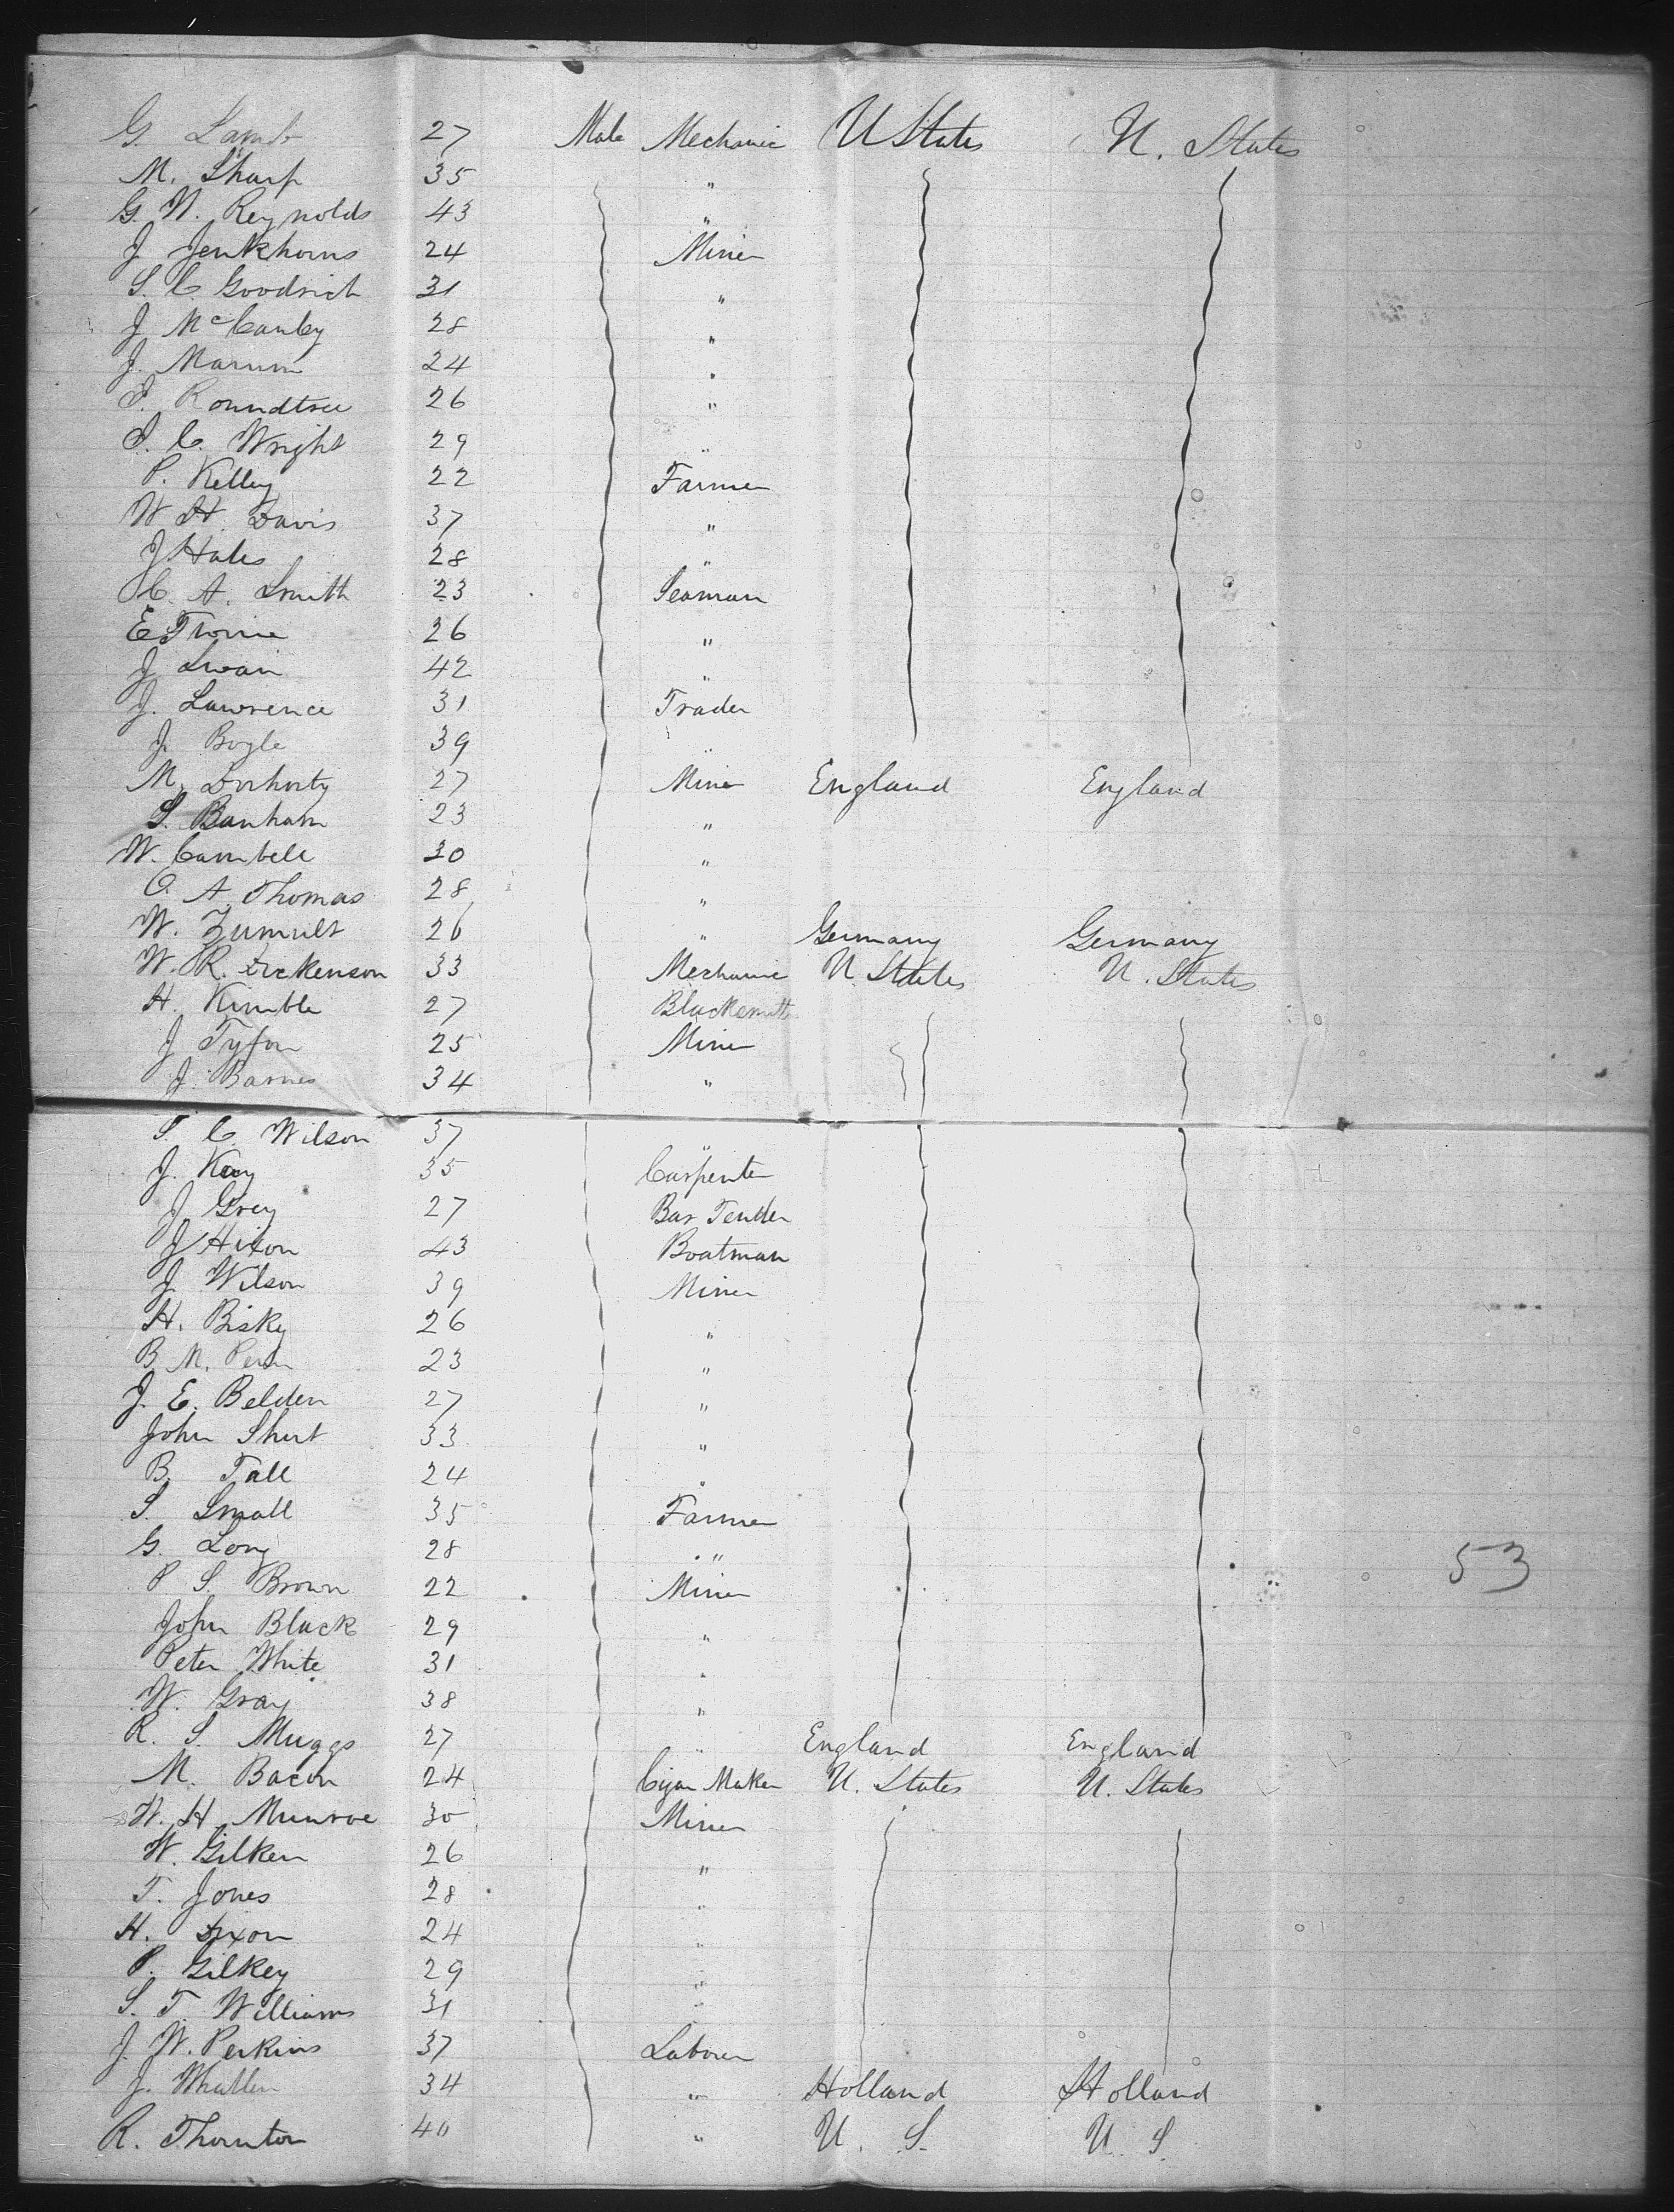 G. Lamb 27 Male Mechanic U States U. States
M. Sharp 35 "
G. W. Reynolds 43 "
J Jenkhorns 24 Miner
S. C. Goodrich 31 "
J McCauley 28 "
J. Marum 24 "
J. Roundtree 26 "
J. C. Wright 29 "
P. Kelley 22 Farmer
W H. Davis 37 "
J. Hales 28 "
C. A. Smith 23 Seaman
E Thorne 26 "
J Swain 42 "
J. Lawrence 31 Trader
J. Bogle 39 "
M. Dorhorty 27 Miner England England
S. Banham 23 "
W. Cambell 30 "
O. A. Thomas 28 "
W. Zumwilt 26 " Germany Germany
W. R. Dickenson 33 Mechanic U. States U. States
H. Kimble 27 Blacksmith
J Tyfon 25 Miner
J. Barnes 34 "
S. C. Wilson 37 "
J. Kay 35 Carpenter
J Grey 27 Bar Tender
J Hixon 43 Boatman
J. Wilson 39 Miner
H. Bisky 26 "
B M. 23 "
J. E. Belden 27 "
John Shert 33 "
B. Tall 24 "
S. Small 35 Farmer
G. Long 28 "
53
P. S. Brown 22 Miner
John Black 29 "
Peter White 31 "
W. Gray 38 "
R. S. Muggs 27 " England England
M. Bacon 24 Cigar Maker U. States U. States
W. H. Munroe 30 Miner
W. Gilken 26 "
T. Jones 28 "
H. Dixon 24 "
P. Gilkey 29 "
S. T. Williams 31 "
J. W. Perkins 37 Laborer
J. Whallen 34 " Holland Holland
R. Thornton 40 " U. S. U. S